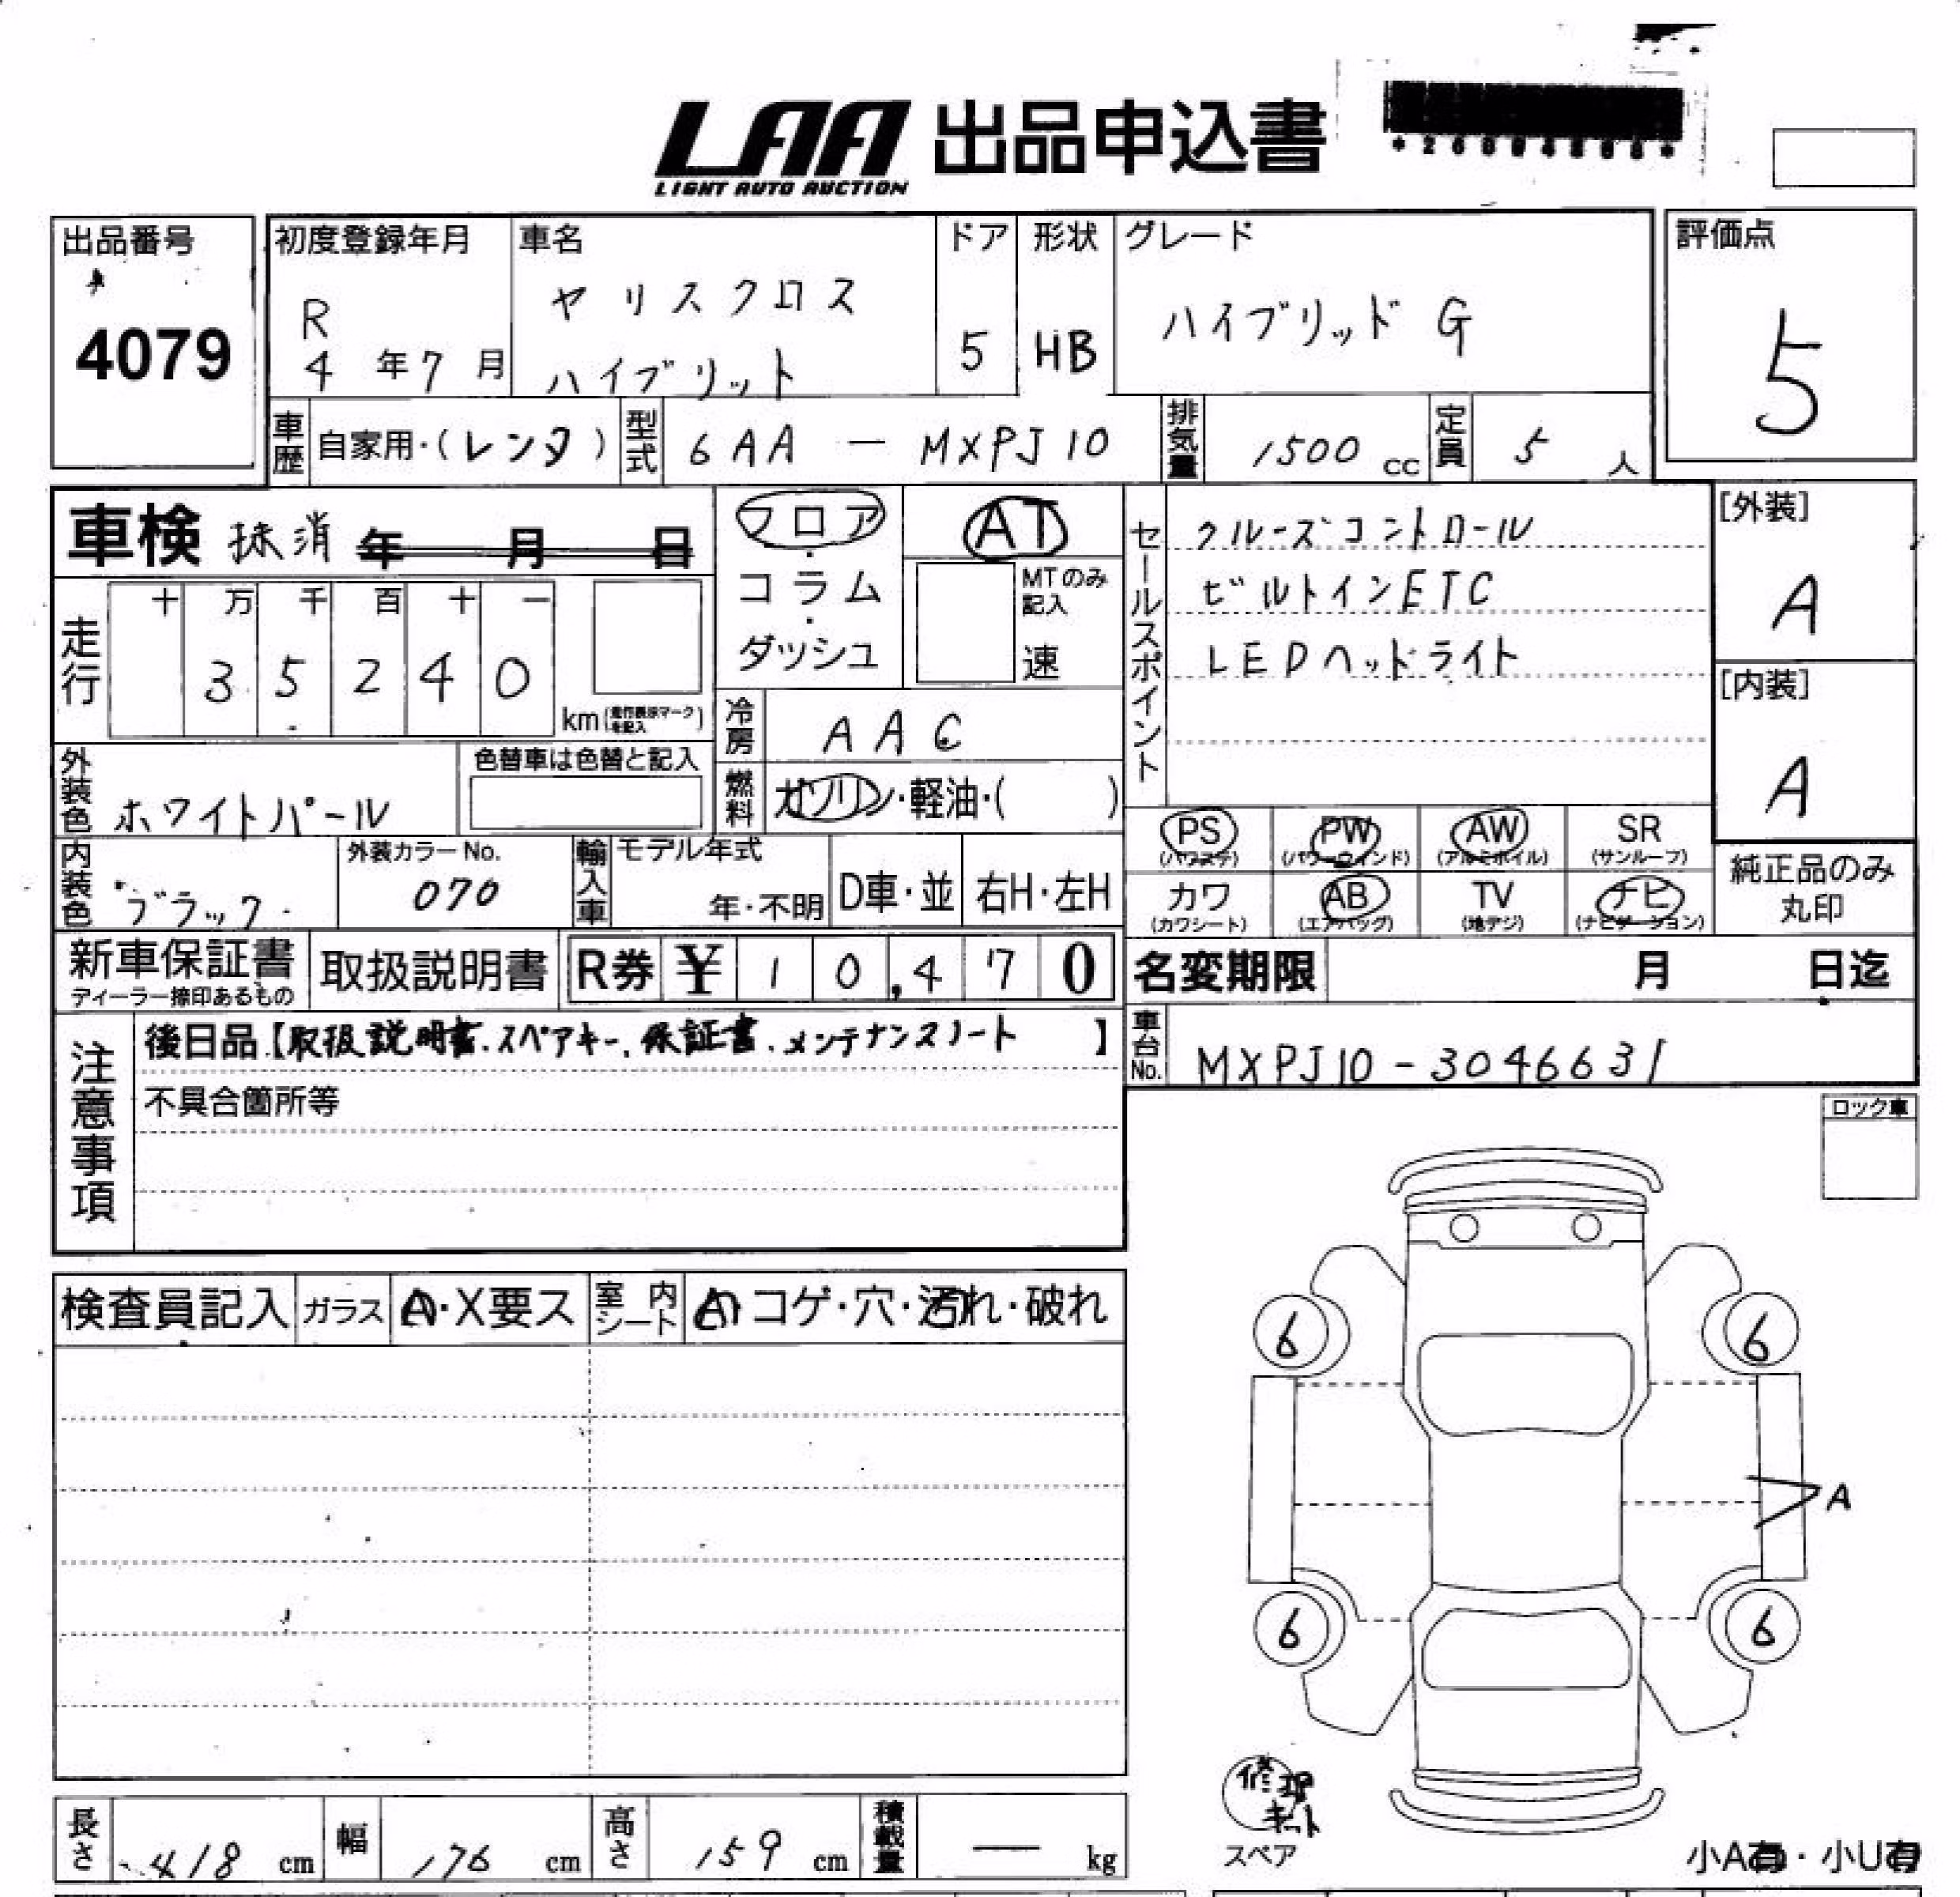 LAA 出品申込書
LIGHT AUTO AUCTION
出品番号
4079
初度登録年月
R
4 年 7 月
車名
ヤリスクロス
ハイブリット
ドア
5
形状
HB
グレード
ハイブリッド G
評価点
5
車歴 自家用・(レンタ)
型式 6AA - MXPJ10
排気量 1500 cc
定員 5 人
車検 抹消 年 月 日
走行
十 万 千 百 十 一
3 5 2 4 0
km(走行表示マークを記入)
フロア・コラム・ダッシュ
AT
MTのみ記入
速
冷房 AAC
燃料 ガソリン・軽油・( )
セールスポイント
クルーズコントロール
ビルトインETC
LEDヘッドライト
[外装]
A
[内装]
A
外装色 ホワイトパール
色替車は色替と記入
内装色 ブラック
外装カラーNo.
070
輸入車 モデル年式
年・不明
D車・並
右H・左H
PS
(パワステ)
PW
(パワーウインド)
AW
(アルミホイル)
SR
(サンルーフ)
カワ
(カワシート)
AB
(エアバッグ)
TV
(地デジ)
ナビ
(ナビゲーション)
純正品のみ
丸印
新車保証書
ディーラー捺印あるもの
取扱説明書
R券 ¥ 1 0,4 7 0
名変期限 月 日迄
注意事項
後日品【取扱説明書、スペアキー、保証書、メンテナンスノート 】
不具合箇所等
車台No. MXPJ10-3046631
ロック車
検査員記入
ガラス A・X要ス
室内シート A・コゲ・穴・汚れ・破れ
6
6
A
6
6
修理キット
スペア
小A有・小U有
長さ 418 cm
幅 176 cm
高さ 159 cm
積載量 — kg